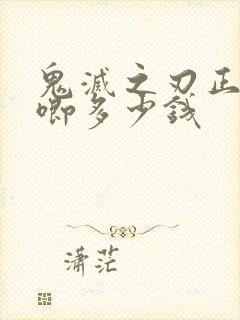 鬼滅之刃正
唧多少錢
潇茫